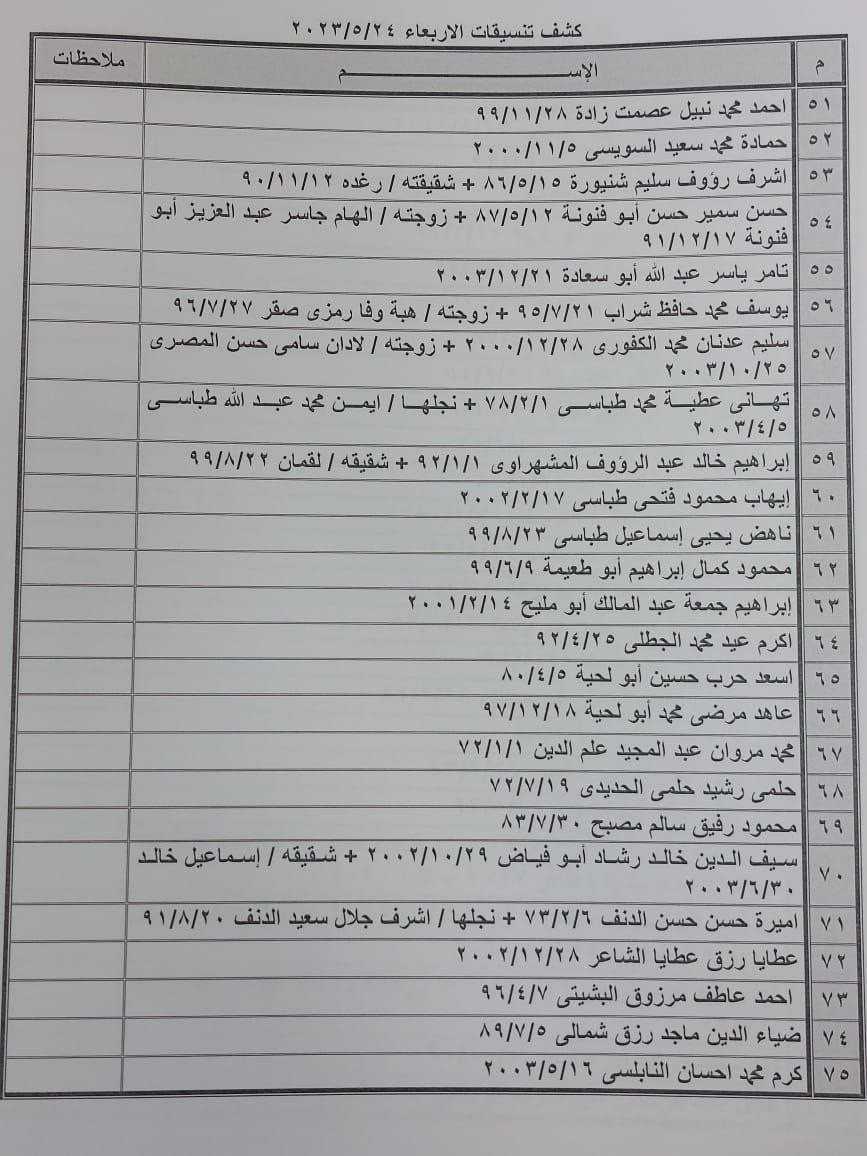 كشف تنسيقات الاربعاء ٢٠٢٣/٥/٢٤
م الإســـــــــــم ملاحظات
٥١ احمد محمد نبيل عصمت زادة ٩٩/١١/٢٨
٥٢ حمادة محمد سعيد السويسى ٢٠٠٠/١١/٥
٥٣ اشرف رؤوف سليم شنيورة ٨٦/٥/١٥ + شقيقته / رغده ٩٠/١١/١٢
٥٤ حسن سمير حسن أبو فنونة ٨٧/٥/١٢ + زوجته / الهام جاسر عبد العزيز أبو
فنونة ٩١/١٢/١٧
٥٥ تامر ياسر عبد الله أبو سعادة ٢٠٠٣/١٢/٢١
٥٦ يوسف محمد حافظ شراب ٩٥/٧/٢١ + زوجته / هبة وفا رمزى صقر ٩٦/٧/٢٧
٥٧ سليم عدنان محمد الكفورى ٢٠٠٠/١٢/٢٨ + زوجته / لادان سامى حسن المصرى
٢٠٠٣/١٠/٢٥
٥٨ تهـــانى عطيـــة محمد طباســـى ٧٨/٢/١ + نجلهـــا / ايمـــن محمد عبـــد الله طباســـى
٢٠٠٣/٤/٥
٥٩ إبراهيم خالد عبد الرؤوف المشهراوى ٩٢/١/١ + شقيقه / لقمان ٩٩/٨/٢٢
٦٠ إيهاب محمود فتحى طباسى ٢٠٠٢/٢/١٧
٦١ ناهض يحيى إسماعيل طباسى ٩٩/٨/٢٣
٦٢ محمود كمال إبراهيم أبو طعيمة ٩٩/٦/٩
٦٣ إبراهيم جمعة عبد المالك أبو مليح ٢٠٠١/٢/١٤
٦٤ اكرم عيد محمد الجطلى ٩٢/٤/٢٥
٦٥ اسعد حرب حسين أبو لحية ٨٠/٤/٥
٦٦ عاهد مرضى محمد أبو لحية ٩٧/١٢/١٨
٦٧ محمد مروان عبد المجيد علم الدين ٧٢/١/١
٦٨ حلمى رشيد حلمى الحديدى ٧٢/٧/١٩
٦٩ محمود رفيق سالم مصبح ٨٣/٧/٣٠
٧٠ سيف الدين خالد رشاد أبو فياض ٢٠٠٢/١٠/٢٩ + شقيقه / إسماعيل خالد
٢٠٠٣/٦/٣٠
٧١ اميرة حسن حسن الدنف ٧٣/٢/٦ + نجلها / اشرف جلال سعيد الدنف ٩١/٨/٢٠
٧٢ عطايا رزق عطايا الشاعر ٢٠٠٢/١٢/٢٨
٧٣ احمد عاطف مرزوق البشيتى ٩٦/٤/٧
٧٤ ضياء الدين ماجد رزق شمالى ٨٩/٧/٥
٧٥ كرم محمد احسان النابلسى ٢٠٠٣/٥/١٦